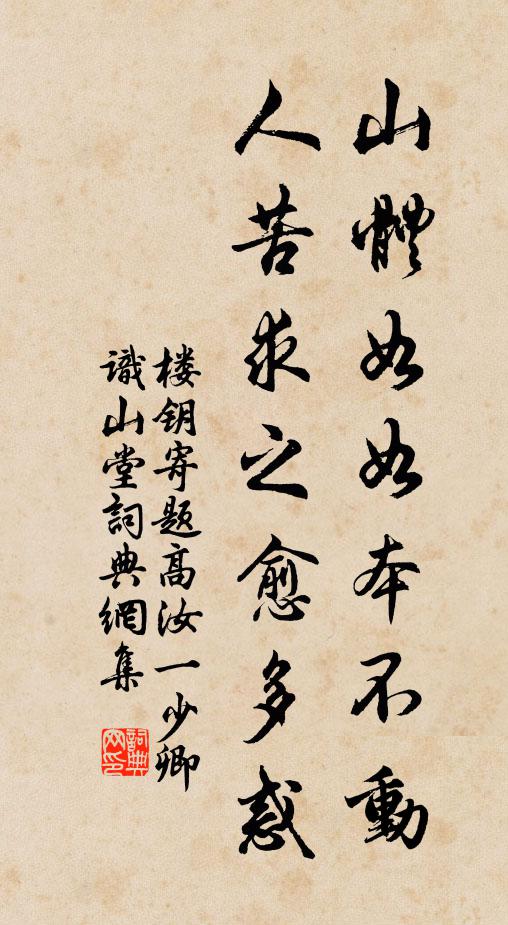 山體如如本不動
人苦求之愈多惑
楼钥寄题高汝一少卿
識山堂詞典網集
詞典
网印